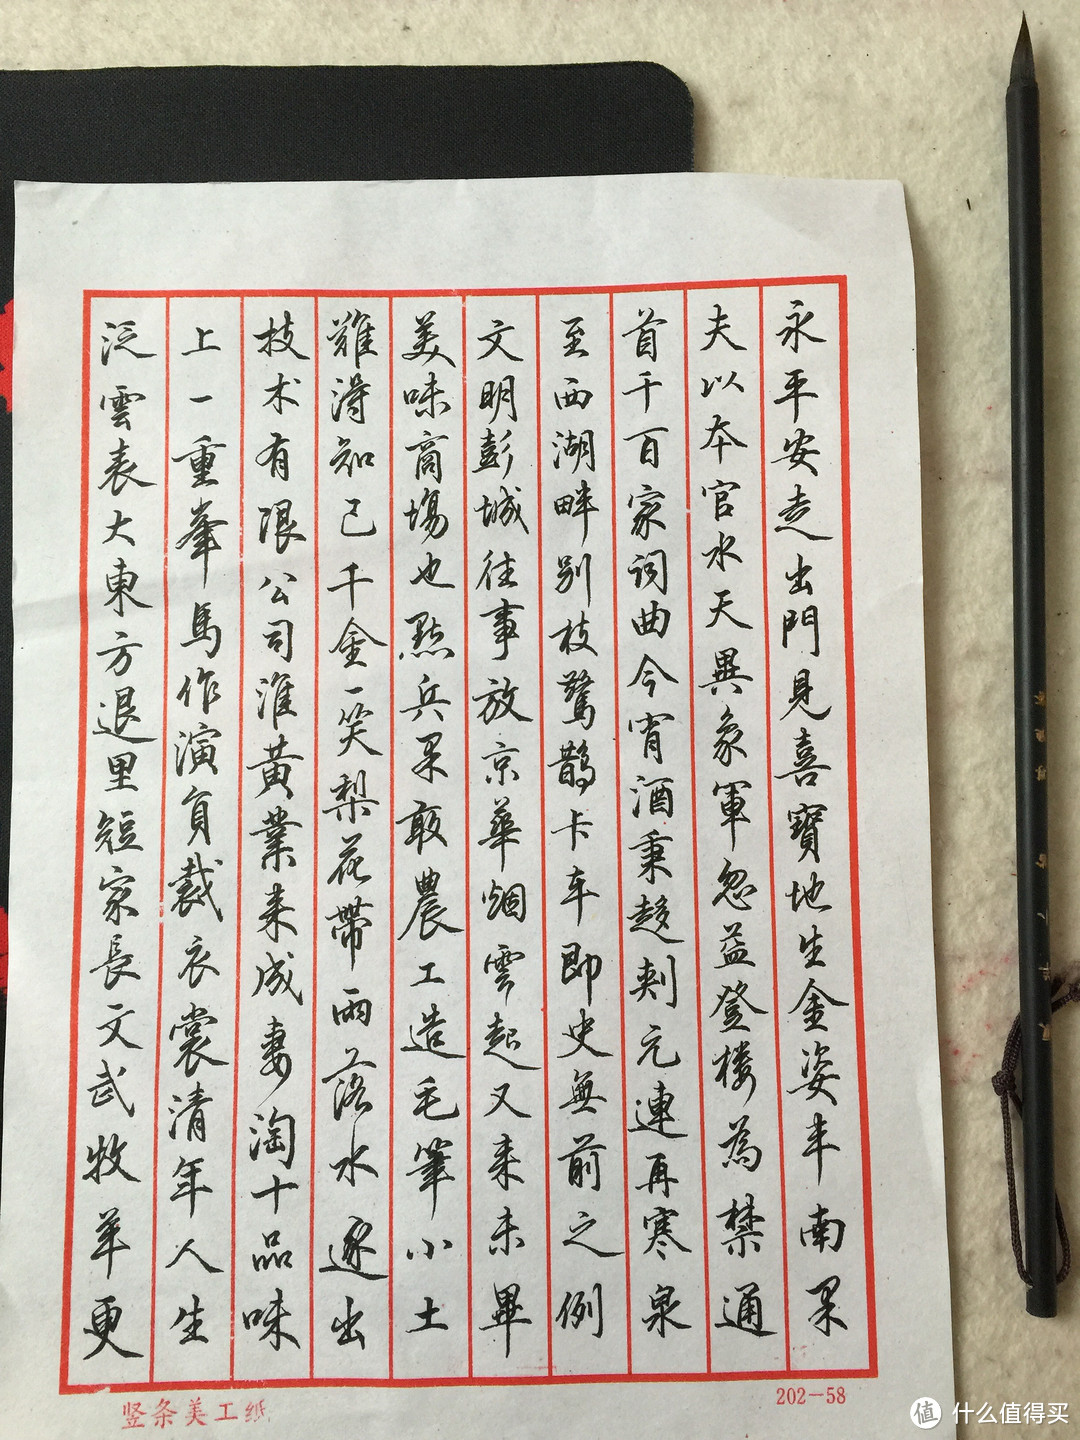 永平安走出門見喜寶地生金姿丰南果
夫以本官水天異象軍忽益登楼為禁通
首千百家詞曲今宵酒秉趍刺元連再寒泉
至西湖畔别枝驚鵲卡车即史無前之例
文明彭城往事放京華烟雲起又来未畢
美味商場也點兵果敢農工造毛筆小土
難得知己千金一笑梨花帶雨落水逐出
技术有限公司淮黄業来成妻淘十品味
上一重峯馬作演負裁衣裳清年人生
泛雲表大東方退里短家長文武牧羊更
竖条美工纸
202-58
值 什么值得买